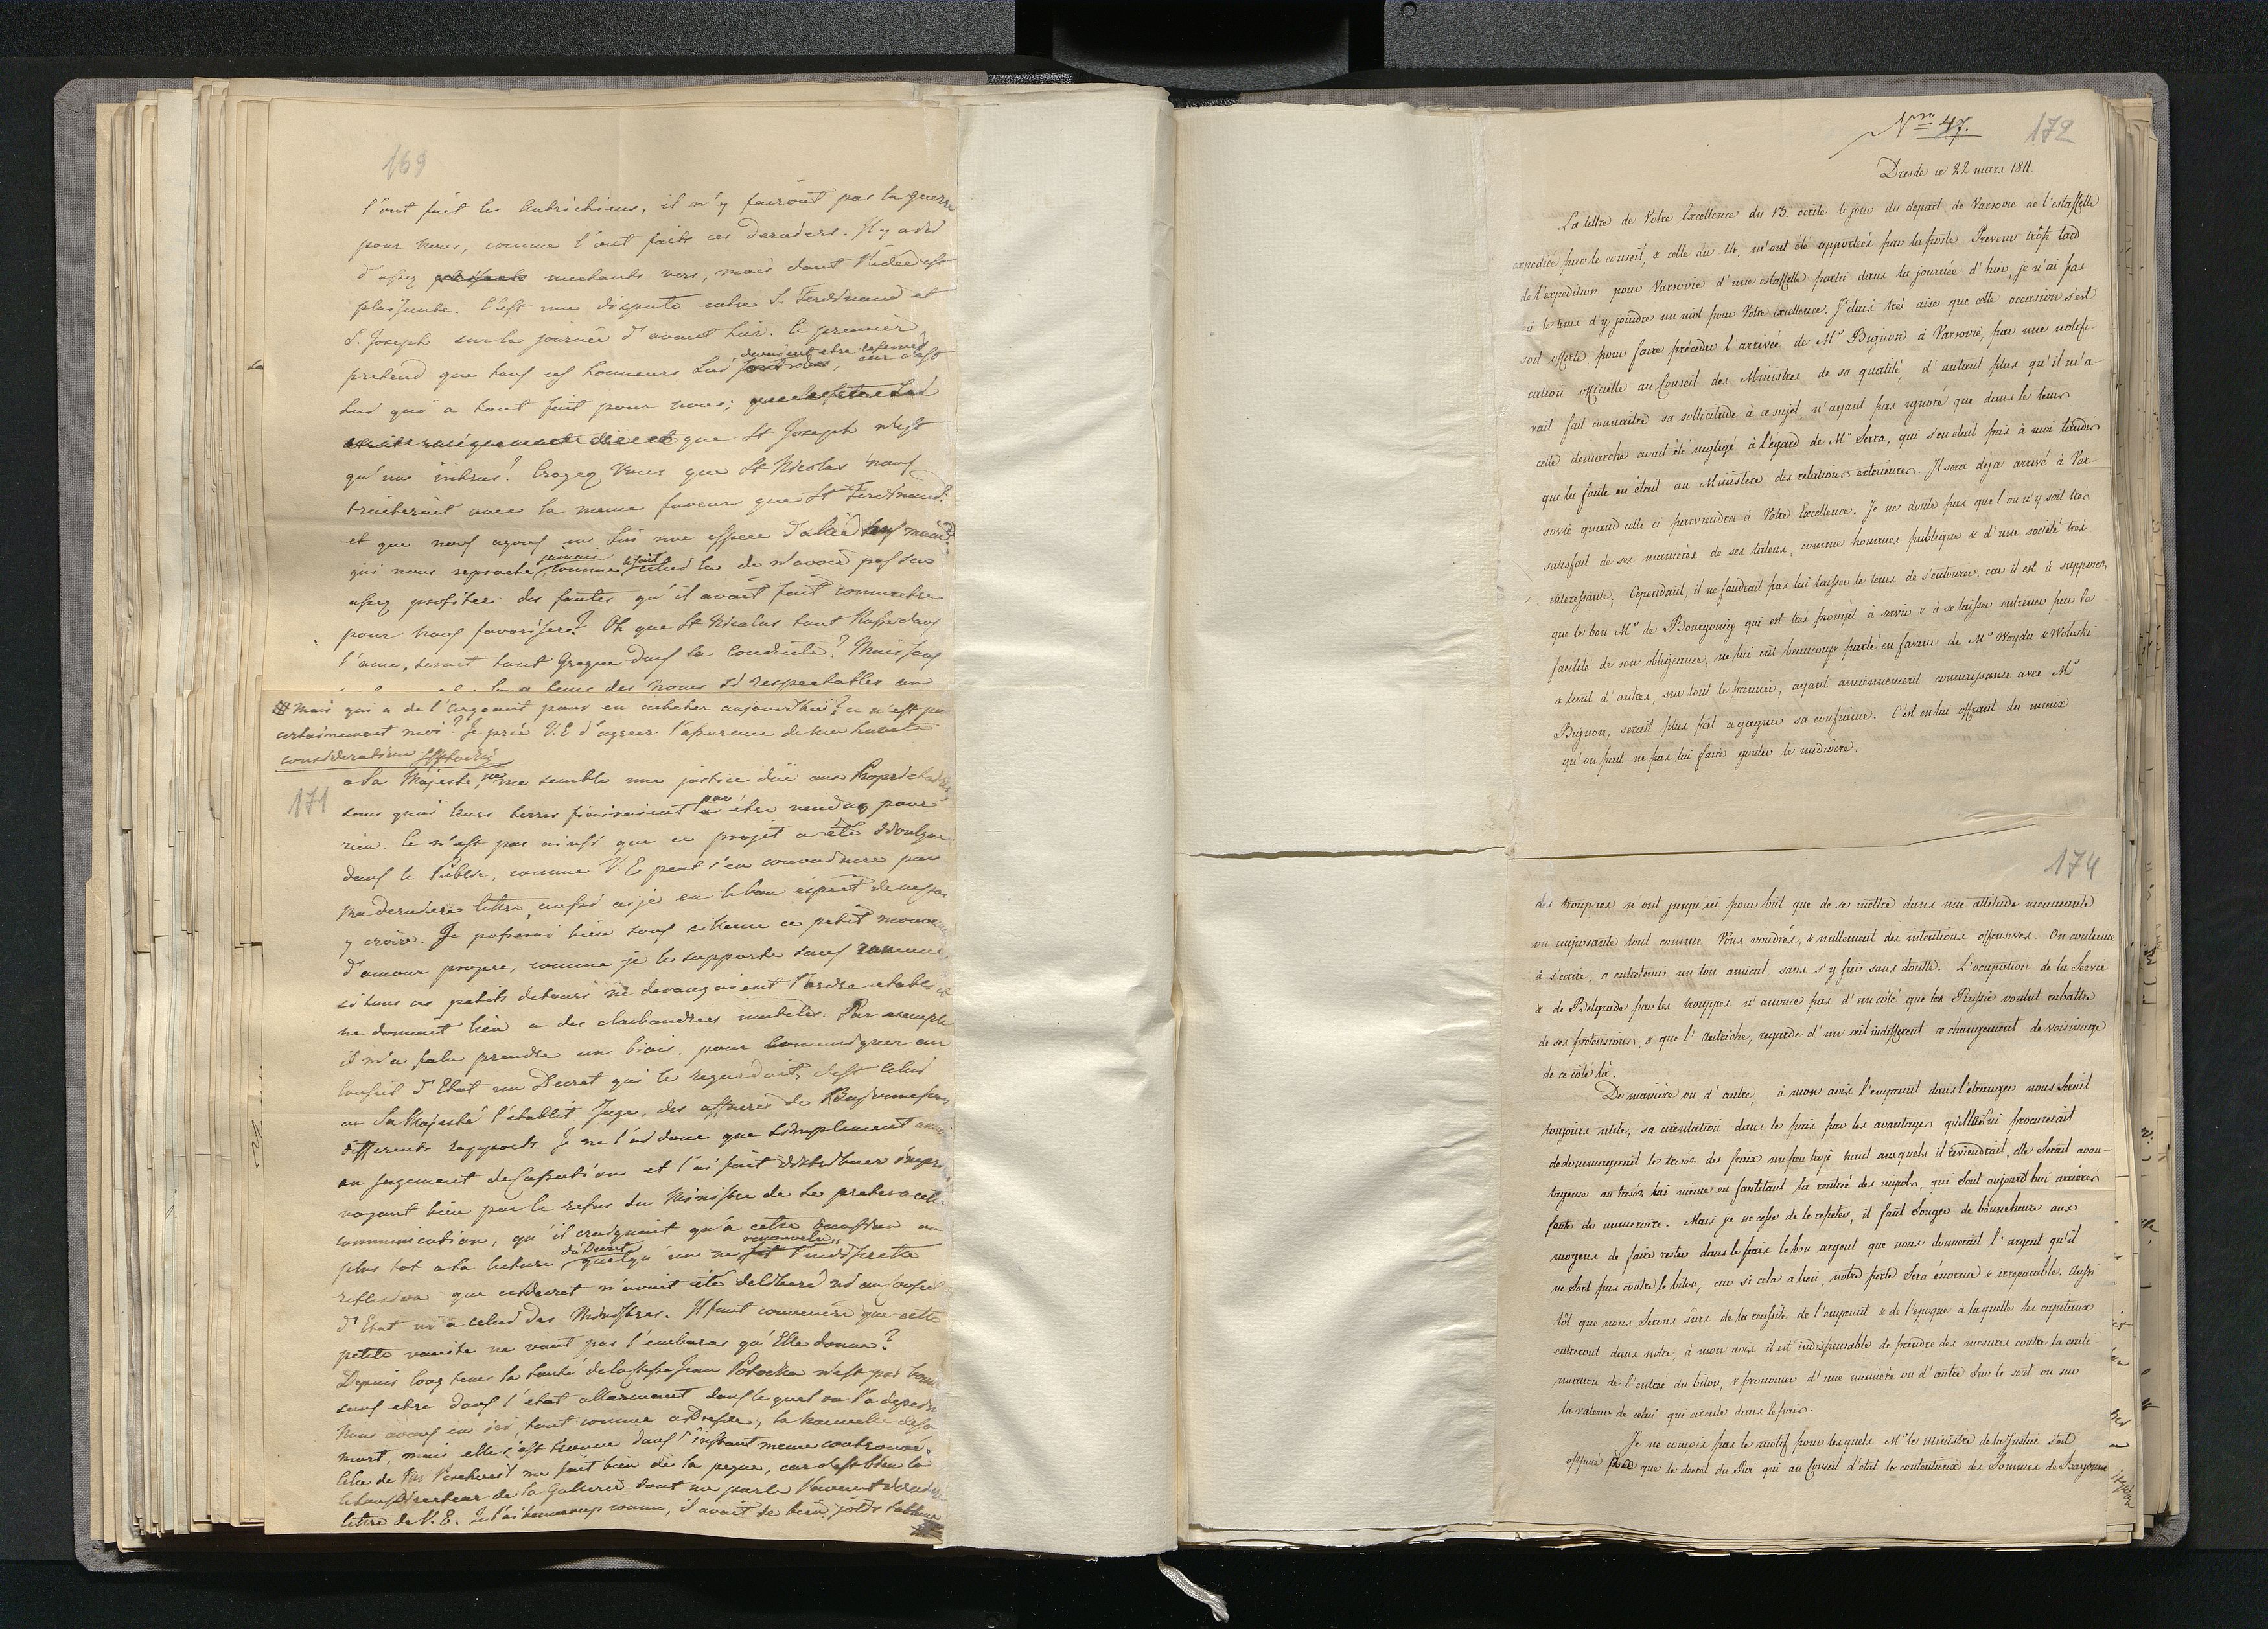 169
l'ont fait les Autrichiens, il n'y fairont pas la guerre
pour nous, comme l'ont faits ces derniers. Il y a des
d'assez mechants vers, mais dont l'idée est
plaisante. C'est une dispute entre S. Ferdinand et
S. Joseph sur la journée d'avant hier. Le premier
pretend que tous ces honneurs devraient etre reservés, car c'est
lui qui a tout fait pour nous;
que St Joseph n'est
qu'un intrus! Croyez vous que St Nicolas nous
traiterait avec la meme faveur que St Ferdinand?
et que nous ayons en lui une espece d'allié
qui nous reproche jamais comme le fait celui la de n'avoir pas su
assez profiter des fautes qu'il avait fait commettre
pour nous favoriser? Oh que St Nicolas tout Russe dans
l'ame, serait tout Greque dans sa conduite? Mais
des noms si respectables
mais qui a de l'argent pour en acheter aujourd'hui? ce n'est pas
certainement moi? Je prie V.E d'agreer l'assurance de ma haute
consideration
171
a Sa Majesté, me semble une justice düe aux Proprietaires,
sans quoi leurs terres finiraient par etre vendus pour
rien. Ce n'est pas ainsi que ce projet a été divulgué
dans le Public, comme V.E peut s'en convaincre par
ma derniere lettre, aussi ai je eu le bon esprit de ne pas
y croire. Je passerai bien sous silence ce petit mouve
d'amour propre, comme je le supporte sans rancune
si tous ces petits detours ne derangeaient l'ordre etabli et
ne donnaient lieu a des clabauderies inutiles. Par exemple
il m'a falu prendre un biais, pour communiquer au
Conseil d'Etat un Decret qui le regardait, c'est celui
ou Sa Majesté l'etablit Juge, des affaires de Bayonne sous
differents rapports. Je ne l'ai donc que simplement
un jugement de Cassation et l'ai fait distribuer
voyant bien par le refus du Ministre de se preter a cette
communication, qu'il craignait qu'a cette occasion ou
plus tot a la lecture du Decret quelqu'un ne renouvela l'indiscrette
reflexion que ce decret n'avait été deliberé ni au Conseil
d'Etat ni a celui des Ministres. Il faut convenir que cette
petite vanité ne vaut pas l'embaras qu'Elle donne?
Depuis long tems la santé de la Ctesse Jean Potocka n'est pas bonne
sans etre dans l'etat allarmant dans le quel on l'a depeint
Nous avons eu ici, tout comme a Dresde, la nouvelle de sa
mort, mais elle s'est trouvée dans l'instant meme controuvée.
Celle de me fait bien de la peine, car c'est bien la
de la Gallerie dont me parle
lettre de V.E. Je l'ai beaucoup connu, il avait de bien jolis tableaux
Nro 47.
172
Dresde ce 22 mars 1811
La lettre de Votre Excellence du 13. ecrite le jour du depart de Varsovie de l'estaffette
expediée par le conseil, & celle du 14, m'ont été apportées par la poste. Prevenu trop tard
de l'expedition pour Varsovie d'une estaffette partie dans la journée d'hier, je n'ai pas
eü le tems d'y joindre un mot pour Votre Excellence. J'etais trés aise que cette occasion s'est
soit offerte pour faire précéder l'arrivée de Mr Bignon à Varsovie, par une notifi-
cation officielle au Conseil des Ministres de sa qualité, d'autant plus qu'il m'a-
vait fait connaitre sa sollicitude à ce sujet, n'ayant pas ignoré que dans le tems
cette demarche avait été negligé à l'égard de Mr Serra, qui s'en était pris à moi tandis
que la faute en était au Ministère des relations exterieures. Il sera deja arrivé à Var-
sovie quand celle ci parviendra à Votre Excellence. Je ne doute pas que l'on n'y soit trés
satisfait de ses manières de ses talens, comme homme publique & d'une société trés
interessante; Cependant, il ne faudrait pas lui laisser le tems de s'entourer, car il est à supposer
que le bon Mr de Bourgoing qui est tres prompt à servir & à se laisser entrainer par la
facilité de son obligeance, ne lui eüt beaucoup parlé en faveur de Mr Woyda & Woloski
& tant d'autres, sur tout le premier, ayant anciennement connaissance avec Mr
Bignon, serait plus pret a gagner sa confiance. C'est en lui offrant du mieux
qu'on peut ne pas lui faire gouter le mediocre.
174
des trouppes n'ont jusqu'ici pour but que de se mettre dans une attitude menacante
ou imposante tout comme Vous voudrés, & nullement des intentions offensives. On continue
à s'ecrire, a entretenir un ton amical, sans s'y fier sans doutte. L'ocupation de la Servie
& de Belgrade par les trouppes n'anonce pas d'un côté que la Russie voulut rabattre
de ses pretensions, & que l'Autriche, regarde d'un œil indifferent ce changement de voisinage
de ce côté là.
De manière ou d'autre, à mon avis l'emprunt dans l'étranger nous serait
toujours utile, sa circulation dans le païs par les avantages qu'elle lui procurerait
dedommagerait le tresor des fraix un peu tropê haut auxquels il reviendrait, elle serait avan-
tageuse au trésor lui même en facilitant la rentrée des impots, qui sont aujourd'hui arrièrés
faute de numeraire. Mais je ne cesse de le repeter, il faut songer de bonne heure aux
moyens de faire rester dans le païs le bon argent que nous donnerait l'argent qu'il
ne sort pas contre le billon, car si cela a lieu, notre perte sera énorme & irreparable. Aussi
tôt que nous serons sûrs de la reussite de l'emprunt & de l'epoque à laquelle les capitaux
entreront dans notre, à mon avis il est indispensable de prendre des mesures contre la conti-
nuation de l'entrée du billon, & prononcer d'une manière ou d'autre sur le sort ou sur
la valeur de celui qui circule dans le païs.
Je ne conçois pas le motif pour lesquels Mr le ministre de la Justice s'est
opposé que le decret du Roi qui au Conseil d'etat le contentieux des Sommes de Bayonne